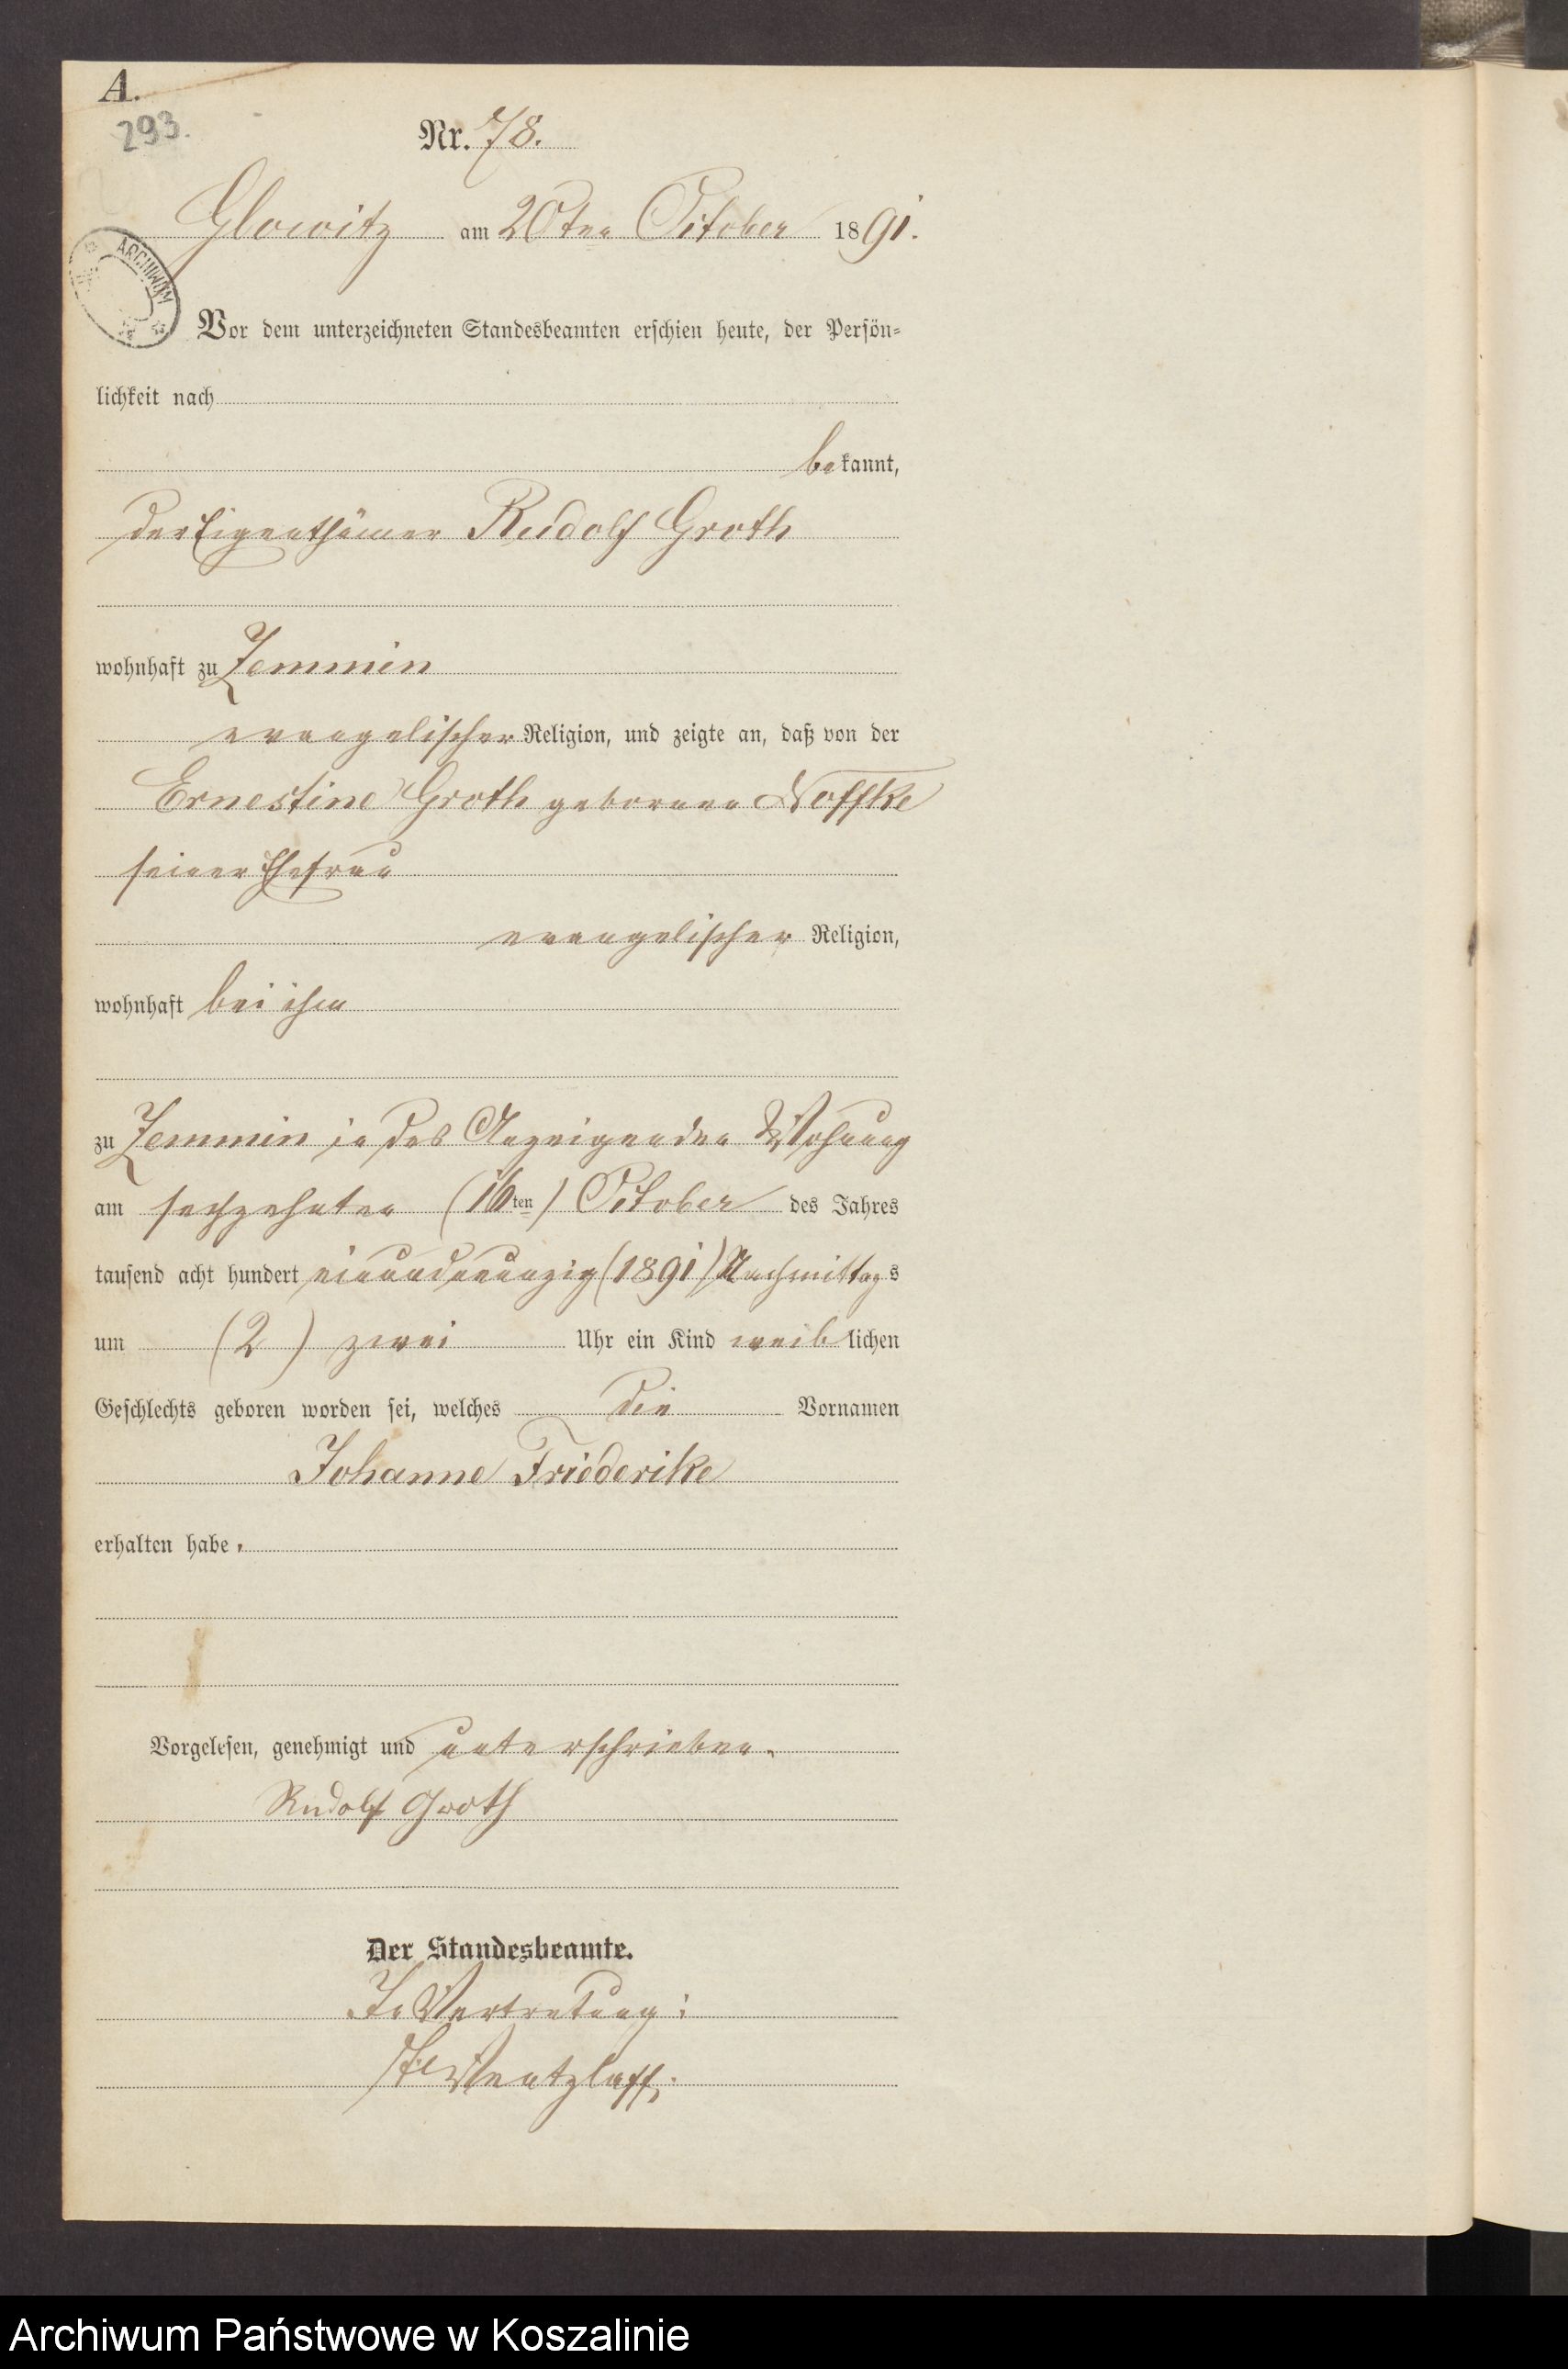 A.
293.
Nr. 78.
Glowitz am 20ten October 1891.
ARCHIWUM
Vor dem unterzeichneten Standesbeamten erschien heute, der Persön-
lichkeit nach
bekannt,
der Eigenthümer Rudolf Groth
wohnhaft zu Zemmin
evangelischer Religion, und zeigte an, daß von der
Ernestine Groth geborenen Noffke
seiner Ehefrau
evangelischer Religion,
wohnhaft bei ihm
zu Zemmin in des Anzeigenden Wohnung
am sechzehnten (16ten) October des Jahres
tausend acht hundert einundneunzig (1891) Nachmittags
um (2) zwei Uhr ein Kind weiblichen
Geschlechts geboren worden sei, welches die Vornamen
Johanne Friederike
erhalten habe.
Vorgelesen, genehmigt und unterschrieben.
Rudolf Groth
Der Standesbeamte.
In Vertretung:
Wentzlaff.
Archiwum Państwowe w Koszalinie